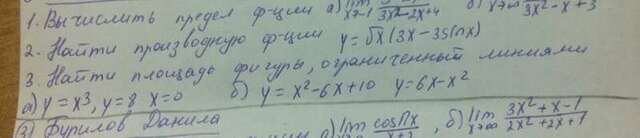 1. Вычислить предел ф-ции а) lim x→1 3x²-2x+4 б) x→∞ 3x²-x+3
2. Найти производную ф-ции y=√x(3x-3sinx)
3. Найти площадь фигуры, ограниченный линиями
а) y=x³, y=8 x=0 б) y=x²-6x+10 y=6x-x²
Бурилов Данила
lim cosПx / x+2, б) lim x→∞ 3x²+x-1 / 2x²+2x+1